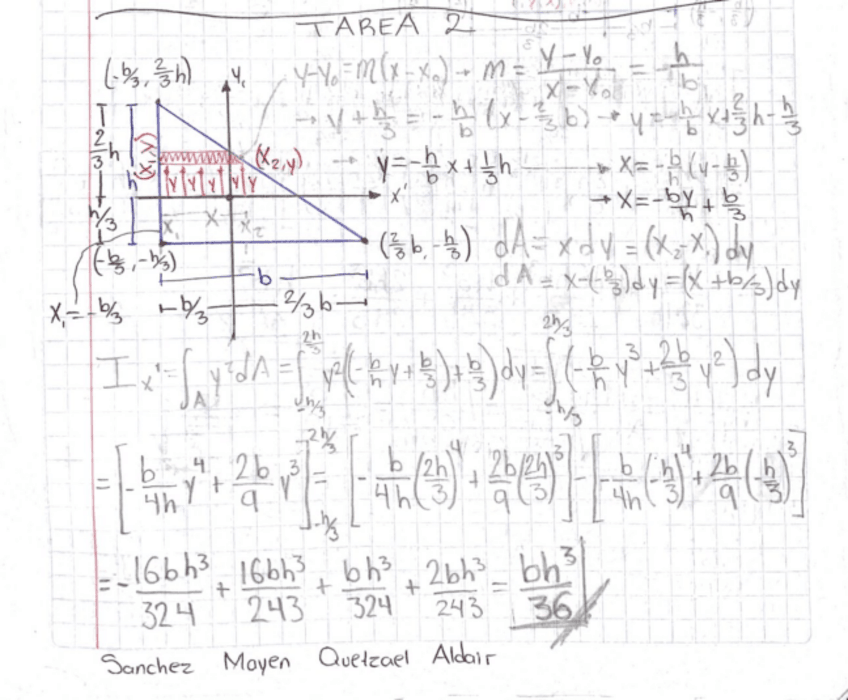 TAREA 2
(-b/3, 2/3 h)
y,
y-y₀=m(x-x₀) → m = (y-y₀)/(x-x₀) = -h/b
→ y + h/3 = -h/b (x - 2/3 b) → y = -h/b x + 2/3 h - h/3
2/3 h
h
(x₁,y)
(x₂,y)
→ y = -h/b x + 1/3 h → x = -b/h (y - h/3)
y y y y y
x'
→ x = -by/h + b/3
h/3
x₁
x
x₂
(-b/3, -h/3)
(2/3 b, -h/3)
dA = x dy = (x₂-x₁) dy
dA = x-(-b/3)dy = (x + b/3) dy
b
x₁ = -b/3
b/3
2/3 b
Ix' = ∫_A y² dA = ∫_{-h/3}^{2h/3} y²((-b/h y + b/3) + b/3) dy = ∫_{-h/3}^{2h/3} (-b/h y³ + 2b/3 y²) dy
= [-b/4h y⁴ + 2b/9 y³]_{-h/3}^{2h/3} = [-b/4h (2h/3)⁴ + 2b/9 (2h/3)³] - [-b/4h (-h/3)⁴ + 2b/9 (-h/3)³]
= -16bh³/324 + 16bh³/243 + bh³/324 + 2bh³/243 = bh³/36
Sanchez Moyen Quetzael Aldair